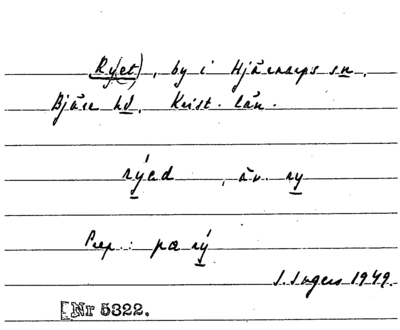 Ry(et), by i Hjärnarps sn.
Bjäre hd. Krist. län.
rýed , äv. ry
Prep.: pa rý
I. Ingers 1949.
[Nr 5322.